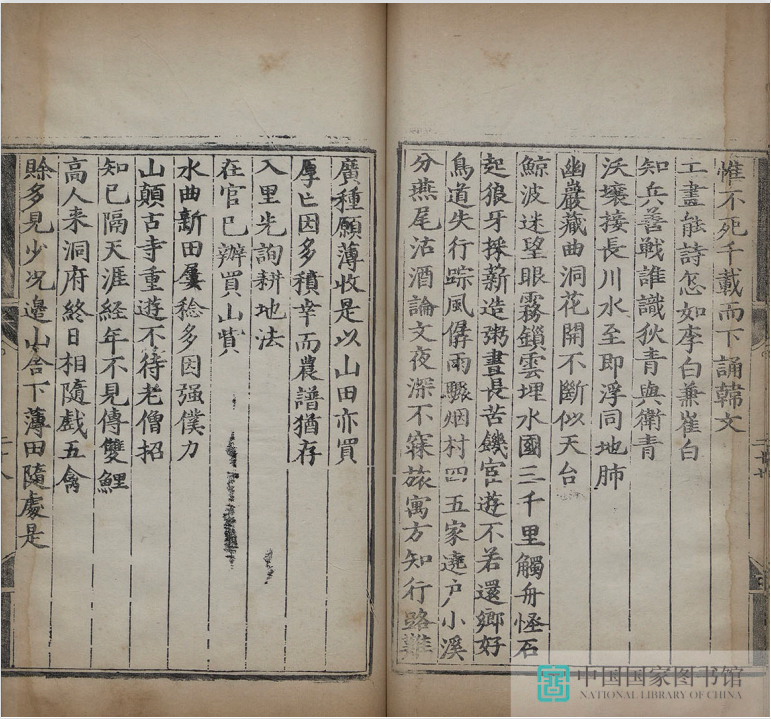 惟不死千載而下誦韓文
工畫能詩怎如李白兼崔白
知兵善戰誰識狄青與衛青
沃壤接長川水至即浮同地肺
幽巖藏曲洞花開不斷似天台
鯨波迷望眼霧鎖雲埋水國三千里觸舟怪石
起狼牙採薪造粥晝長苦饑宦遊不若還鄉好
鳥道失行踪風僝雨驟烟村四五家遶戶小溪
分燕尾沽酒論文夜深不寐旅寓方知行路難
廣種願薄收是以山田亦買
厚亡因多積幸而農譜猶存
入里先詢耕地法
在官已辦買山貲
水曲新田屢稔多因强僕力
山顛古寺重遊不待老僧招
知已隔天涯經年不見傳雙鯉
高人来洞府終日相隨戲五禽
賒多見少况邊山舍下薄田隨處是
中国国家图书馆
NATIONAL LIBRARY OF CHINA